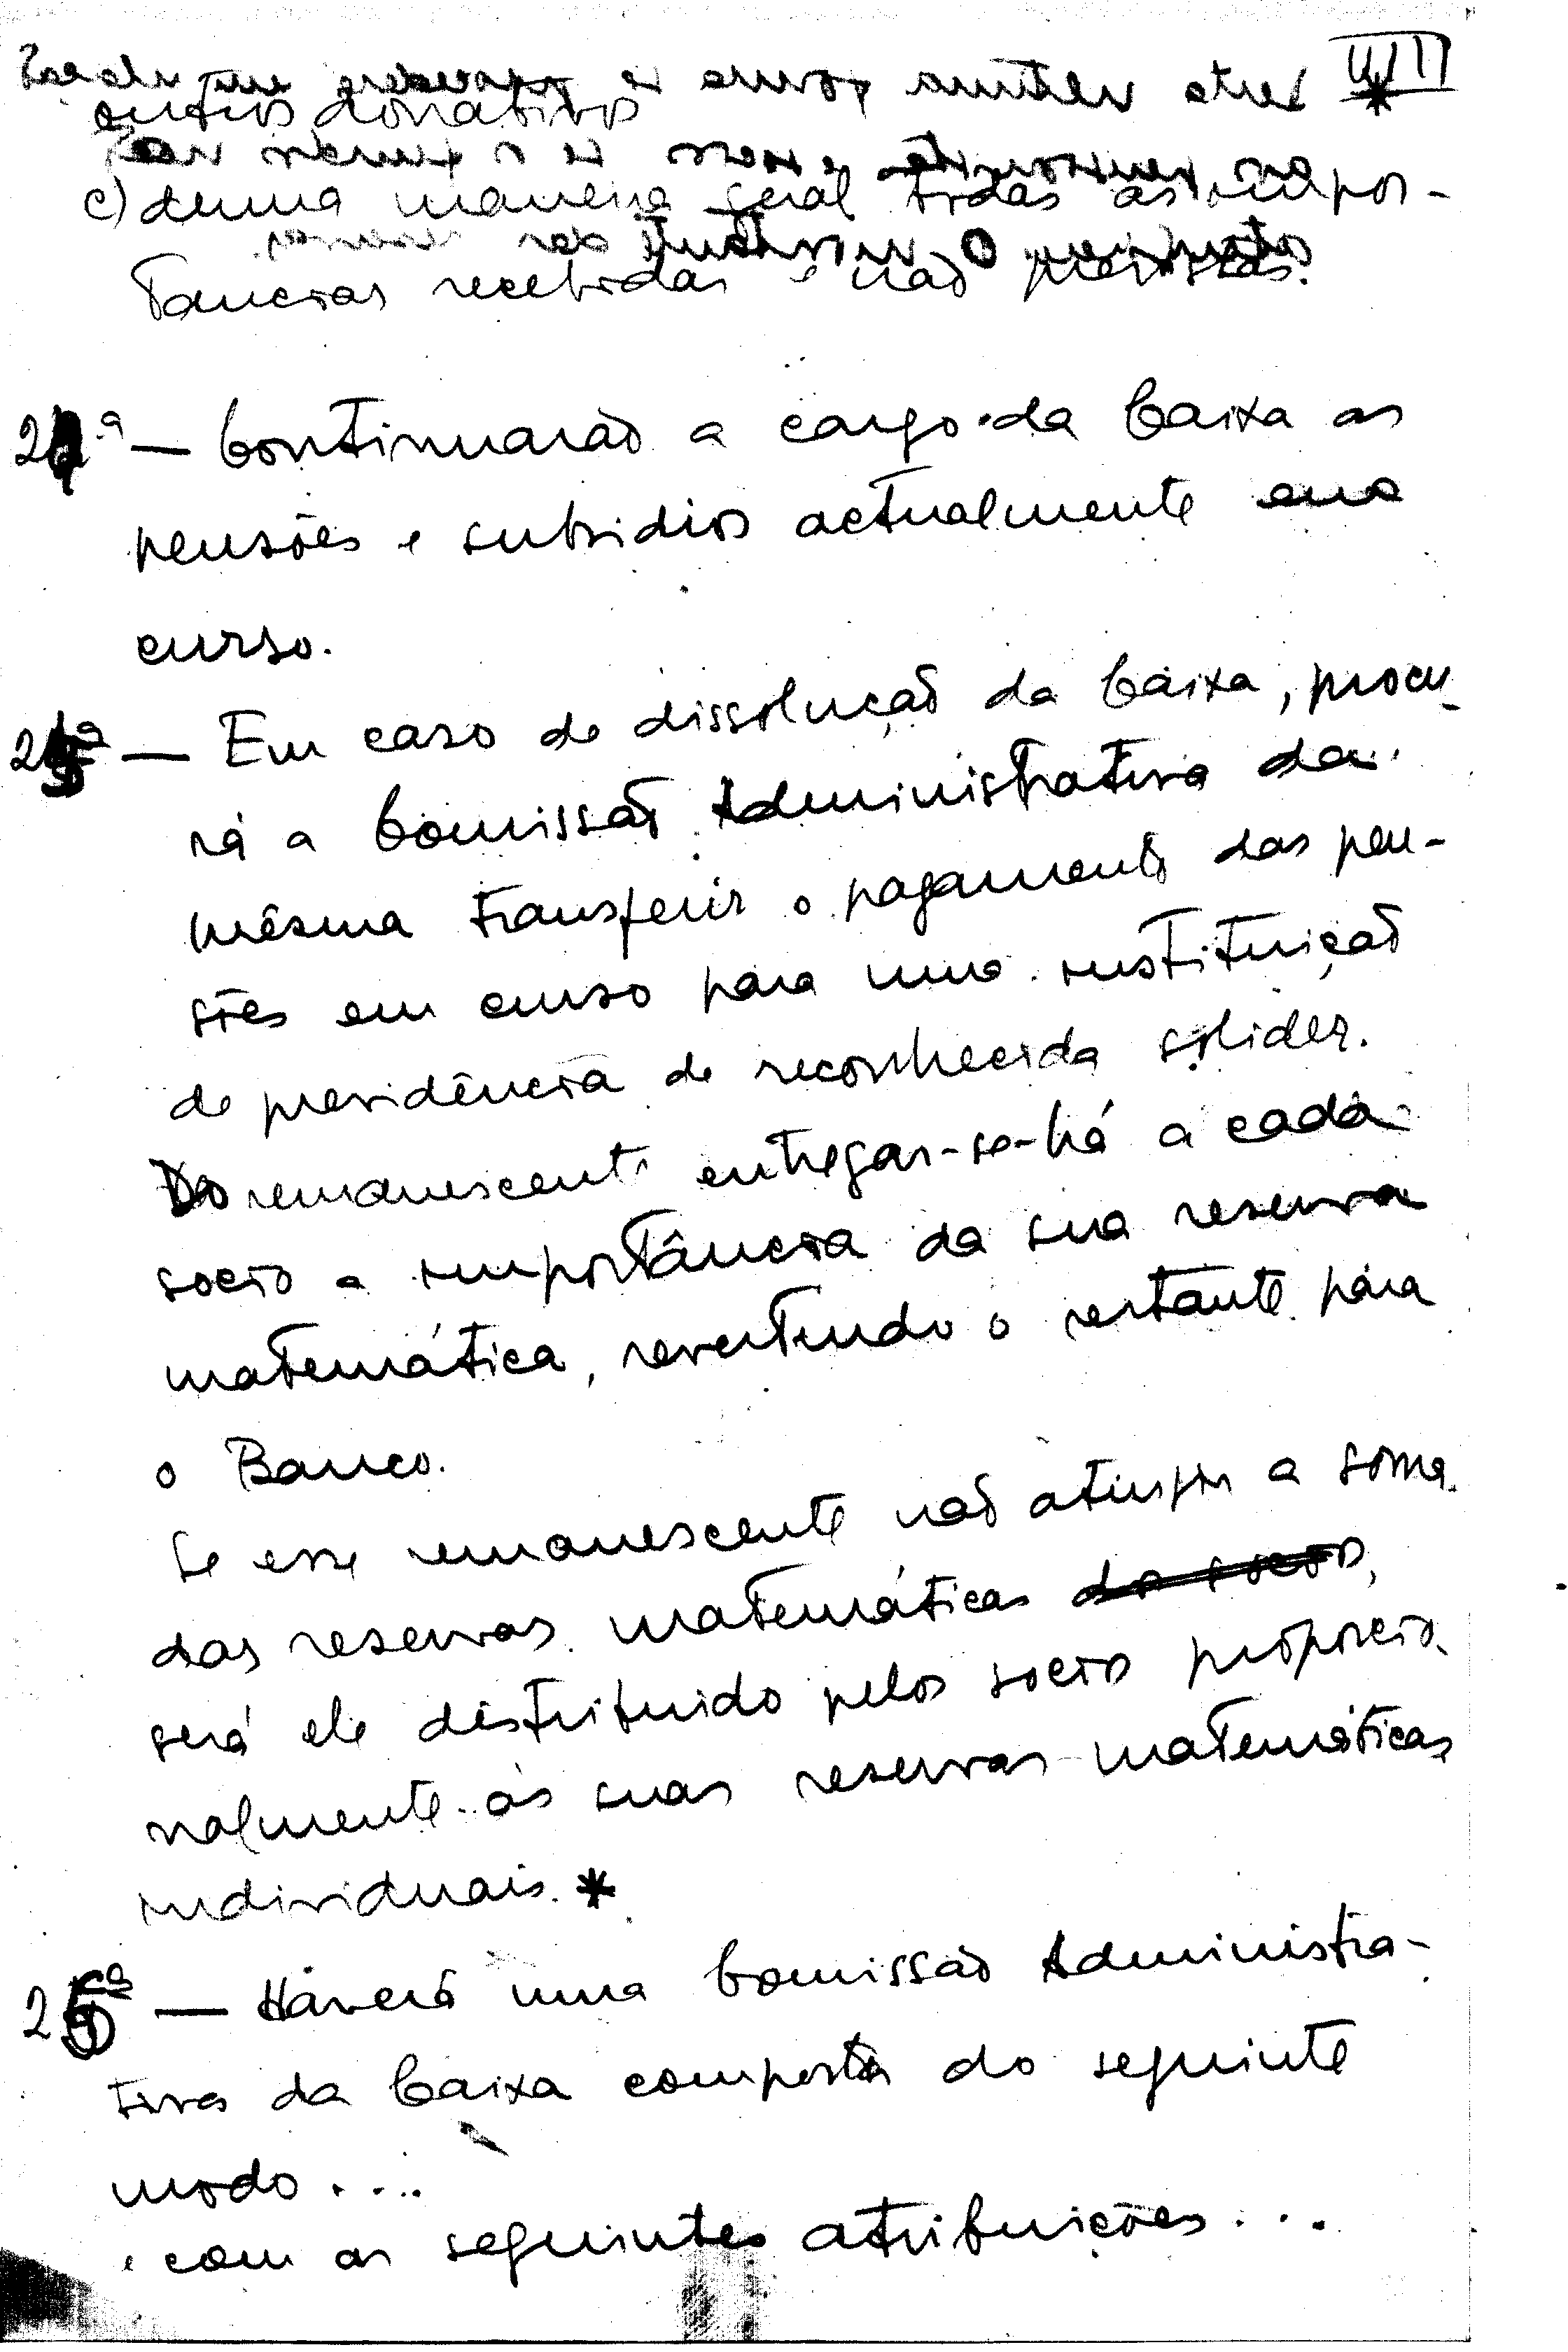 VIII
*
outros donativos
c) duma maneira geral todas as impor-
tancias recebidas e não previstas.
24.ª — Continuarão a cargo da Caixa as
pensões e subsidios actualmente em
curso.
25ª — Em caso de dissolução da Caixa, procu-
rá a Comissão Administrativa da
mêsma transferir o pagamento das pen-
sões em curso para uma instituição
de previdência de reconhecida solidez.
Do remanescente entregar-se-há a cada
socio a importância da sua reserva
matemática, revertendo o restante para
o Banco.
Se esse remanescente não atingir a soma
das reservas matemáticas do socios,
será ele distribuido pelos socios proporcio-
nalmente às suas reservas matemáticas
individuais. *
26ª — Haverá uma Comissão Administra-
tiva da Caixa composta do seguinte
modo....
e com as seguintes atribuições...